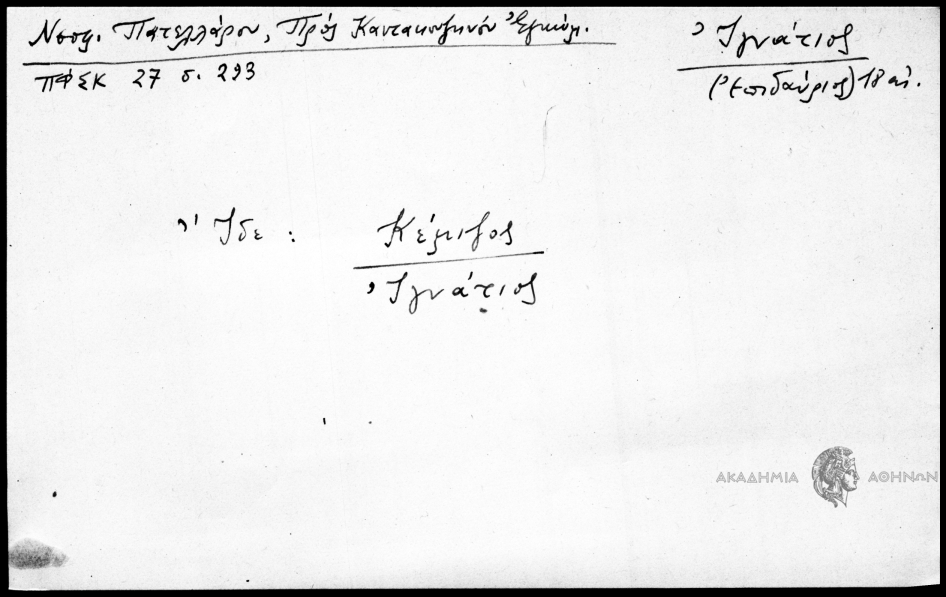 Νεοφ. Πατελλάρου, Πρὸς Καντακουζηνόν Ἐγκώμ.
ΠΦΣΚ 27 σ. 293
Ἰγνάτιος
(Ἐπιδαύριος) 18 αἰ.
Ἴδε :
Κέμιζος
Ἰγνάτιος
ΑΚΑΔΗΜΙΑ ΑΘΗΝΩΝ